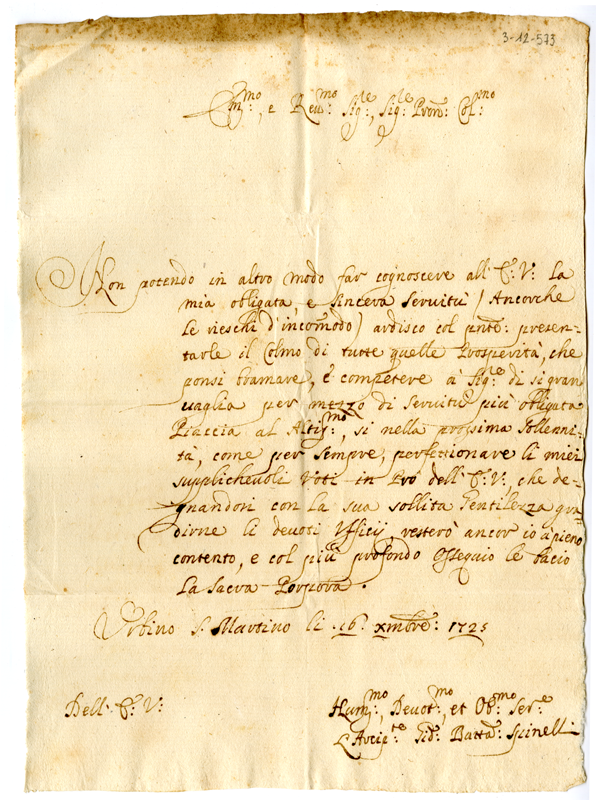 3-12-573
Em:mo, e Reu:mo Sig:le, Sig:le Pron: Col:mo
Non potendo in altro modo far cognoscere all' E: V: La
mia obligata, e sincera seruitù (Ancorche
Le rieschi d'incomodo) ardisco col pnte: presen-
tarle il Colmo di tutte quelle Prosperità, che
bramare, è competere à Sig:e di si gran
uaglia per mezzo di seruitù più obligata
Piaccia al Altis:mo, si nella prossima sollenni-
tà, come per sempre, perfectionare li miei
supplicheuoli Voti in Prò dell' E: V:, che de-
gnandosi con La sua sollita Gentilezza gra-
dirne li deuoti Ufficij, resterò ancor io à pieno
contento, e col più profondo Ossequio le bacio
La Sacra Porpora.
Urbino S. Martino li .16. xmbre: 1725
Dell' E: V:
Hum:mo, Deuot:mo, et Ob:mo Ser:e
L'Arcip:te Gio: Batta: Scinelli